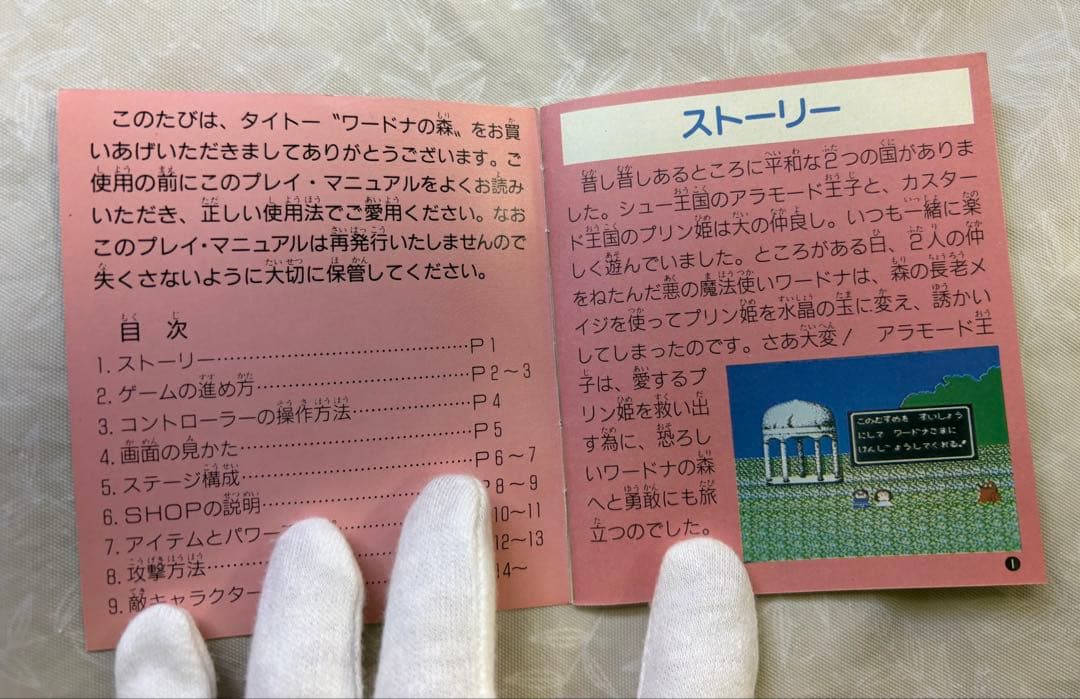 このたびは、タイトー〝ワードナの森〟をお買
いあげいただきましてありがとうございます。ご
使用の前にこのプレイ・マニュアルをよくお読み
いただき、正しい使用法でご愛用ください。なお
このプレイ・マニュアルは再発行いたしませんので
失くさないように大切に保管してください。
目次
1. ストーリー……………………………P1
2. ゲームの進め方………………………P2〜3
3. コントローラーの操作方法…………P4
4. 画面の見かた…………………………P5
5. ステージ構成…………………………P6〜7
6. SHOPの説明…………………………P8〜9
7. アイテムとパワー 10〜11
8. 攻撃方法 12〜13
9. 敵キャラクター 14〜
ストーリー
昔し昔しあるところに平和な2つの国がありま
した。シュー王国のアラモード王子と、カスター
ド王国のプリン姫は大の仲良し。いつも一緒に楽
しく遊んでいました。ところがある日、2人の仲
をねたんだ悪の魔法使いワードナは、森の長老メ
イジを使ってプリン姫を水晶の玉に変え、誘かい
してしまったのです。さあ大変！ アラモード王
子は、愛するプ
リン姫を救い出
す為に、恐ろし
いワードナの森
へと勇敢にも旅
立つのでした。
このむすめを すいしょう
にして ワードナさまに
けんじょうしてくれる!
1